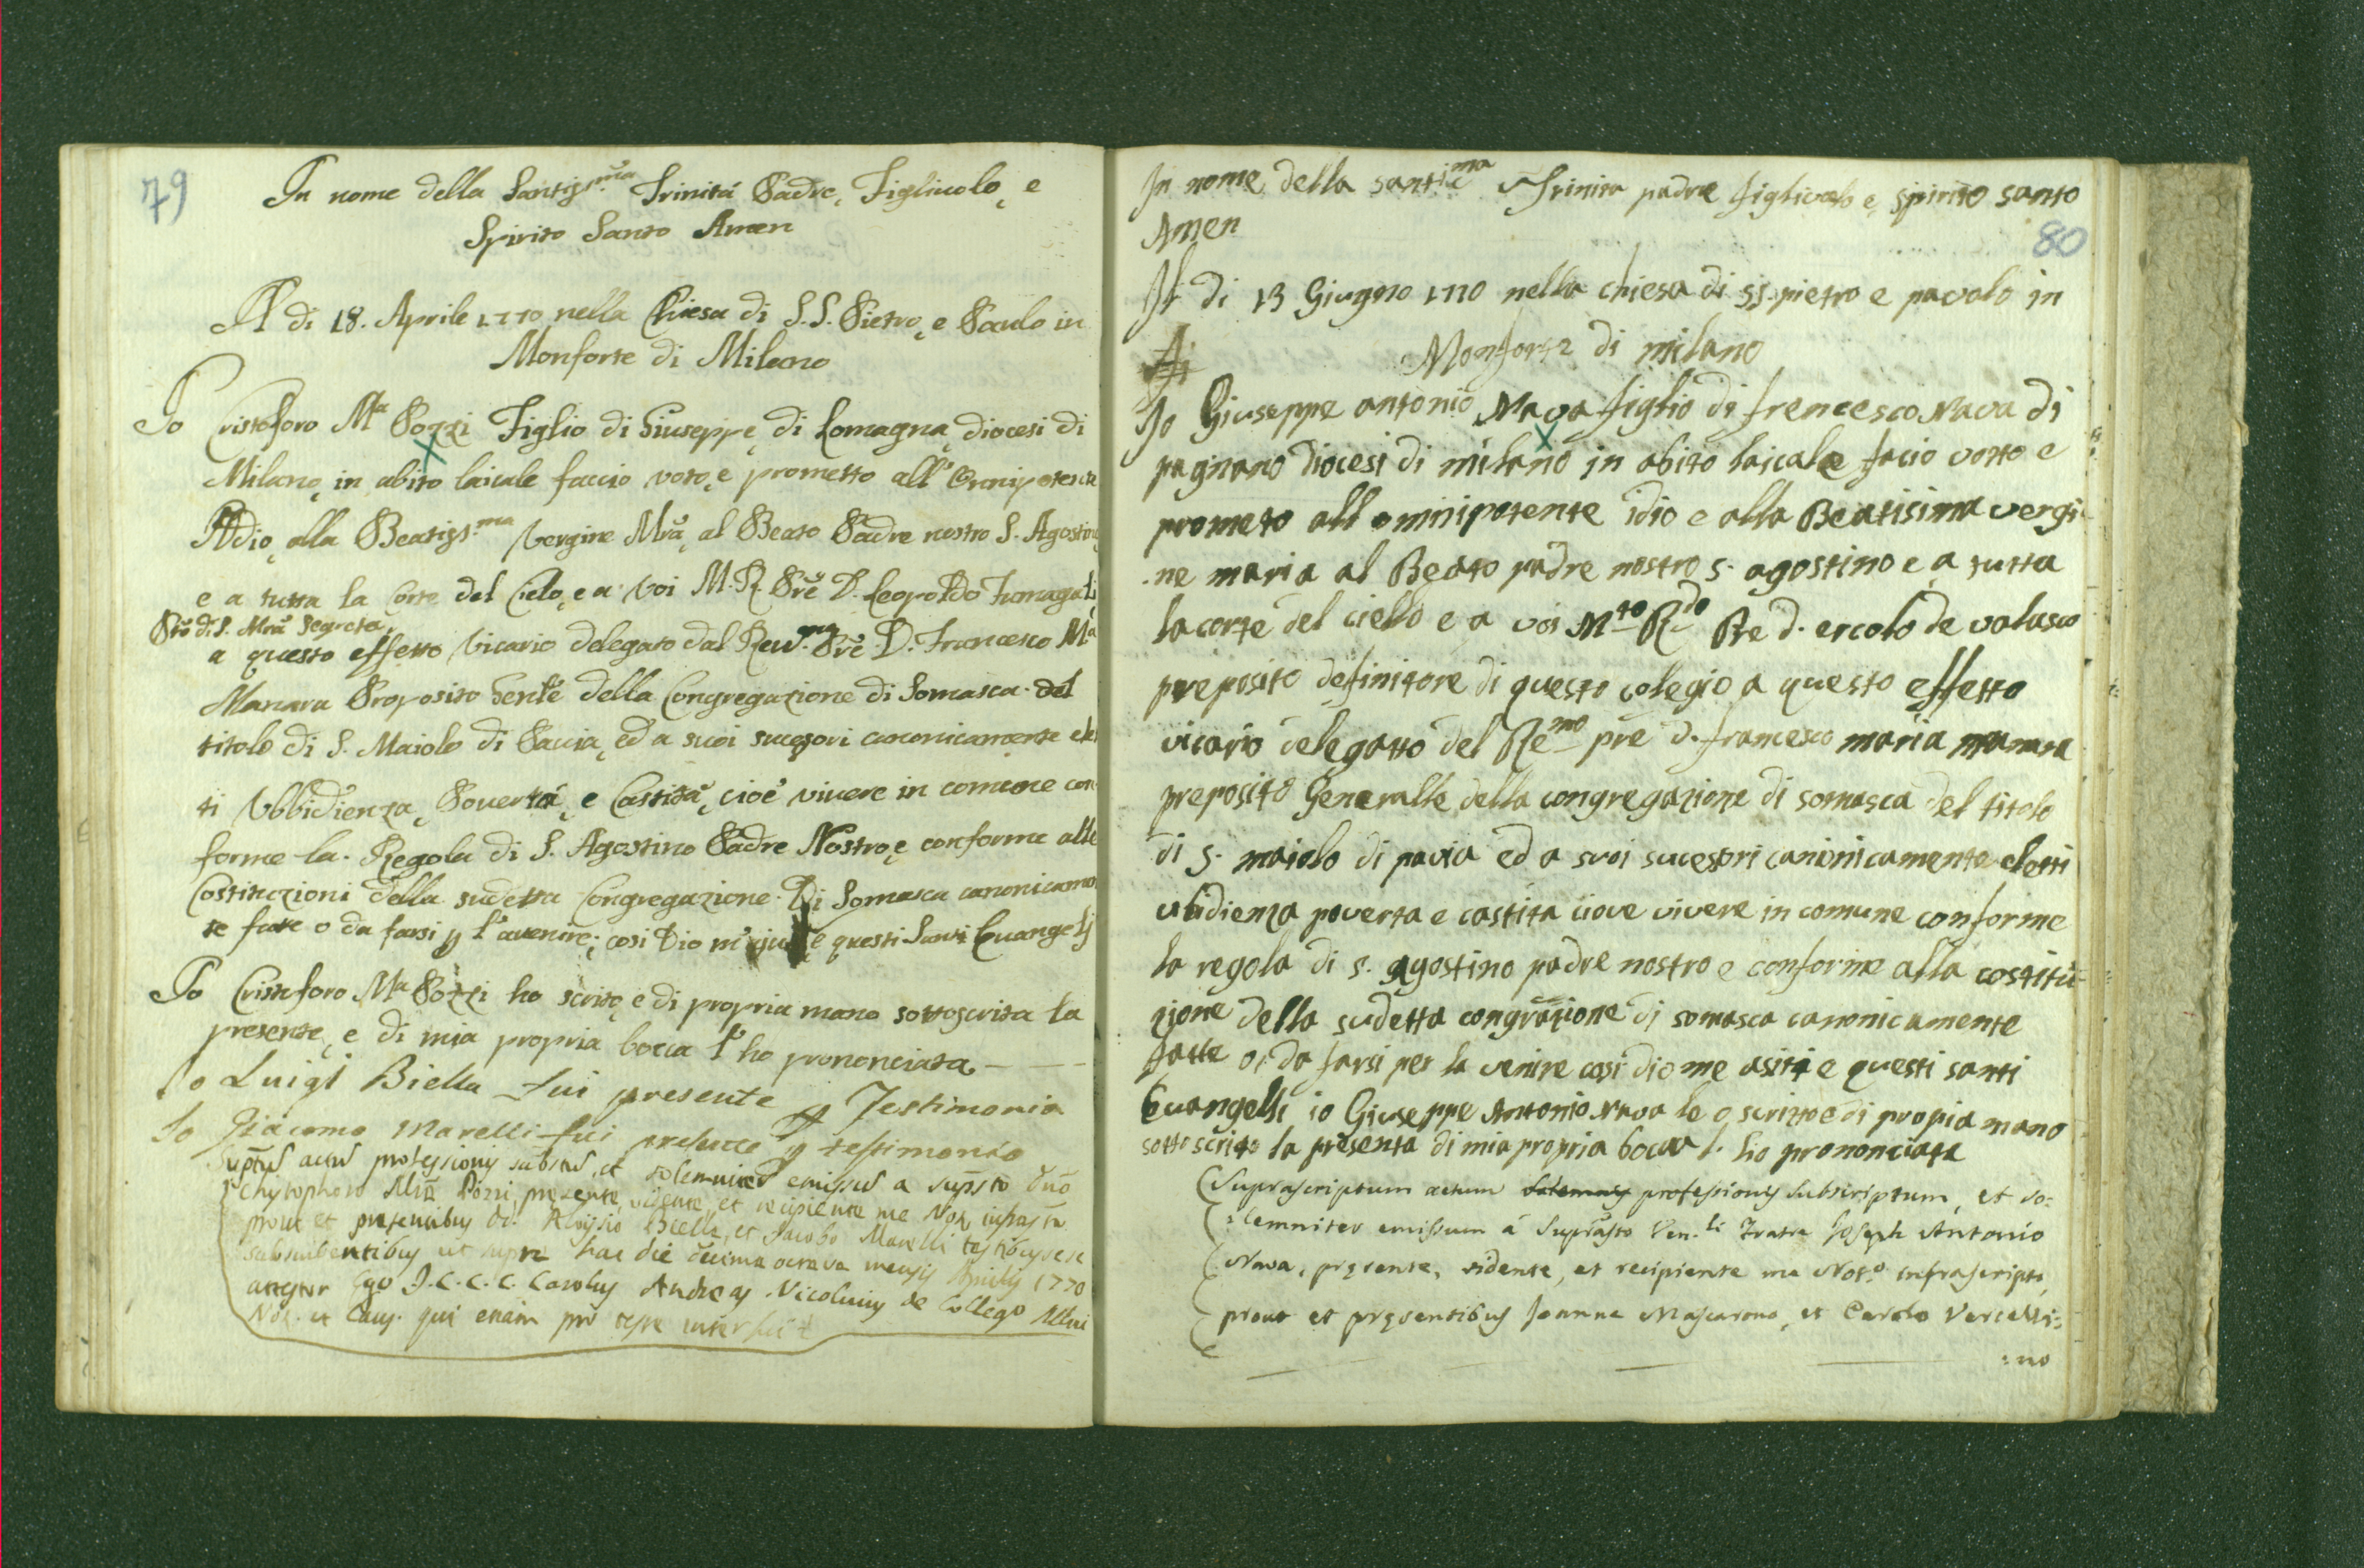 79
In nome della Santiss.ma Trinitá Padre, Figliuolo, e
Spirito Santo Amen
A di 18. Aprile 1770 nella Chiesa di S.S. Pietro, e Paulo in
Monforte di Milano
Io Cristoforo Ma Pozzi Figlio di Giuseppe, di Lomagna, diocesi di
Milano, in abito laicale faccio voto, e prometto all' Omnipotente
Iddio, alla Beatiss.ma Vergine Mra, al Beato Padre nostro S. Agostino,
e a tutta la Corte del Cielo, e a Voi M. R. Pre D. Leopoldo Fumagali
Pto di S. Mra Segreta,
a questo effetto Vicario delegato dal Reud.mo Pre D. Francesco Ma
Manara Proposito Genle della Congregazione di Somasca del
titolo di S. Maiolo di Pavia, ed a suoi sucessori canonicamente elet
ti Ubbidienza, Povertá, e Castità, cioè vivere in comune con
forme la Regola di S. Agostino Padre Nostro, e conforme alle
Costituzioni della sudetta Congregazione Di Somasca canonicamen
te fatte o da farsi p l'avenire; cosi Dio m'ajuti e questi Santi Evangelj
Io Cristoforo Ma Pozzi ho scrito, e di propria mano sottoscrita la
presente, e di mia propria bocca l'ho prononciata
Io Luigi Biella fui presente p Testimonio
Io Giacomo Marelli fui presente p testimonio
Suptus actus professionis subscus, et solemniter emissus a supsto Dno
Chistophoro Mra Pozzi, presente, vidente, et recipiente me Not. infrasto
prout et presentibus DD. Aloysio Biella, et Jacobo Marelli testibus
subscribentibus ut supra hac die decima octava mensis Aprilis 1770
attestor Ego J.C.C.C. Carolus Andreas Nicolinus de Collego Mlni
Not. et Caus. qui etiam pro teste interfui
In nome della santi.ma Trinita padre figlivolo e spirito santo
Amen
80
Il di 13 Giugno 1770 nella chiesa di ss. pietro e pavolo in
Monforte di milano
Io Giuseppe antonio Nava figlio di francesco Nava di
pagnano diocesi di milano in abito laicale facio votto e
prometo all omnipotente idio e alla Beatisima vergi
ne maria al Beato padre nostro s. agostino e a tutta
la corte del ciello e a voi Mto Rdo Pre d. ercolo de valasco
preposito definitore di questo colegio a questo effetto
vicario delegatto del Remo pre d. francesco maria manara
preposito Generalle della congregazione di somasca del titolo
di s. maiolo di pavia ed a suoi sucessori canonicamente eletti
ubidienza poverta e castita ciove vivere in comune conforme
la regola di s. agostino padre nostro e conforme alla costitu=
zione della sudetta congrazione di somasca canonicamente
fatte o da farsi per la venire cosi dio me asiti e questi santi
Evangelli io Giuseppe Antonio Nava le o scritto e di propia mano
sotto scrito la presenta di mia propria boca l. ho prononciata
Suprascriptum actum solemnis professionis subscriptum, et so=
=lemniter emissum á Suprasto Ven.li Fratre Joseph Antonio
Nava, presente, vidente, et recipiente me Not.o infrascripto,
prout et presentibus Joanne Mascarono, et Carolo Vercelli=
=no